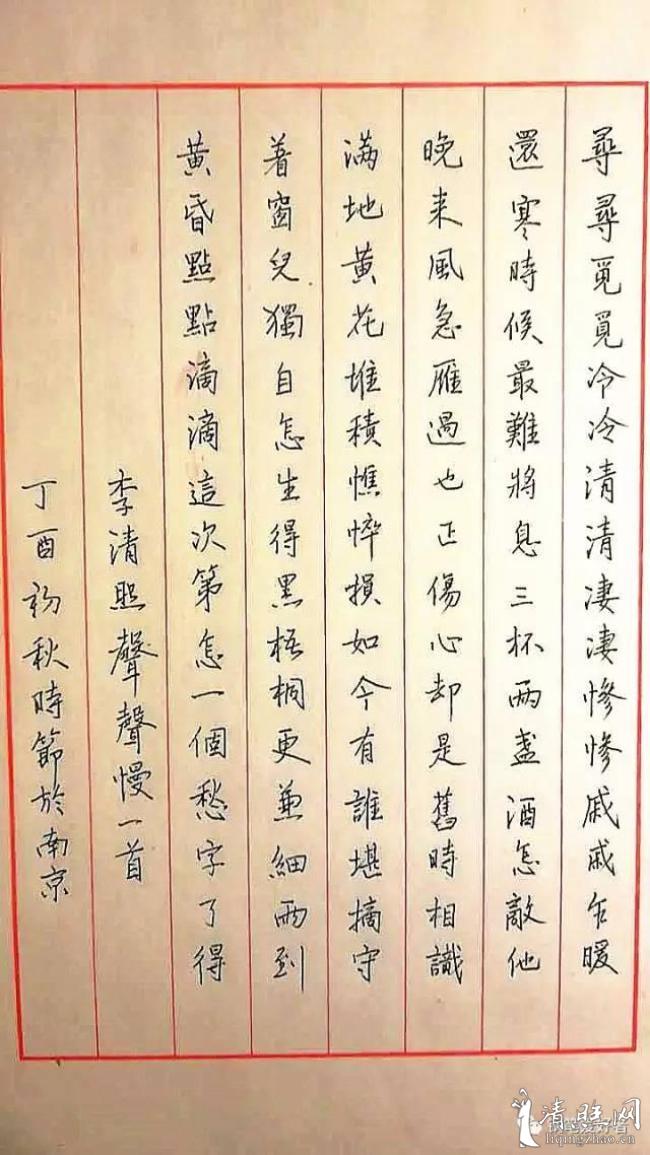 尋尋覓覓冷冷清清凄凄慘慘戚戚乍暖
還寒時候最難將息三杯兩盞酒怎敵他
晚来風急雁過也正傷心却是舊時相識
满地黄花堆積憔悴損如今有誰堪摘守
着窗兒獨自怎生得黑梧桐更兼細雨到
黄昏點點滴滴這次第怎一個愁字了得
李清照聲聲慢一首
丁酉初秋時節於南京
清照网
liqingzhao.cn